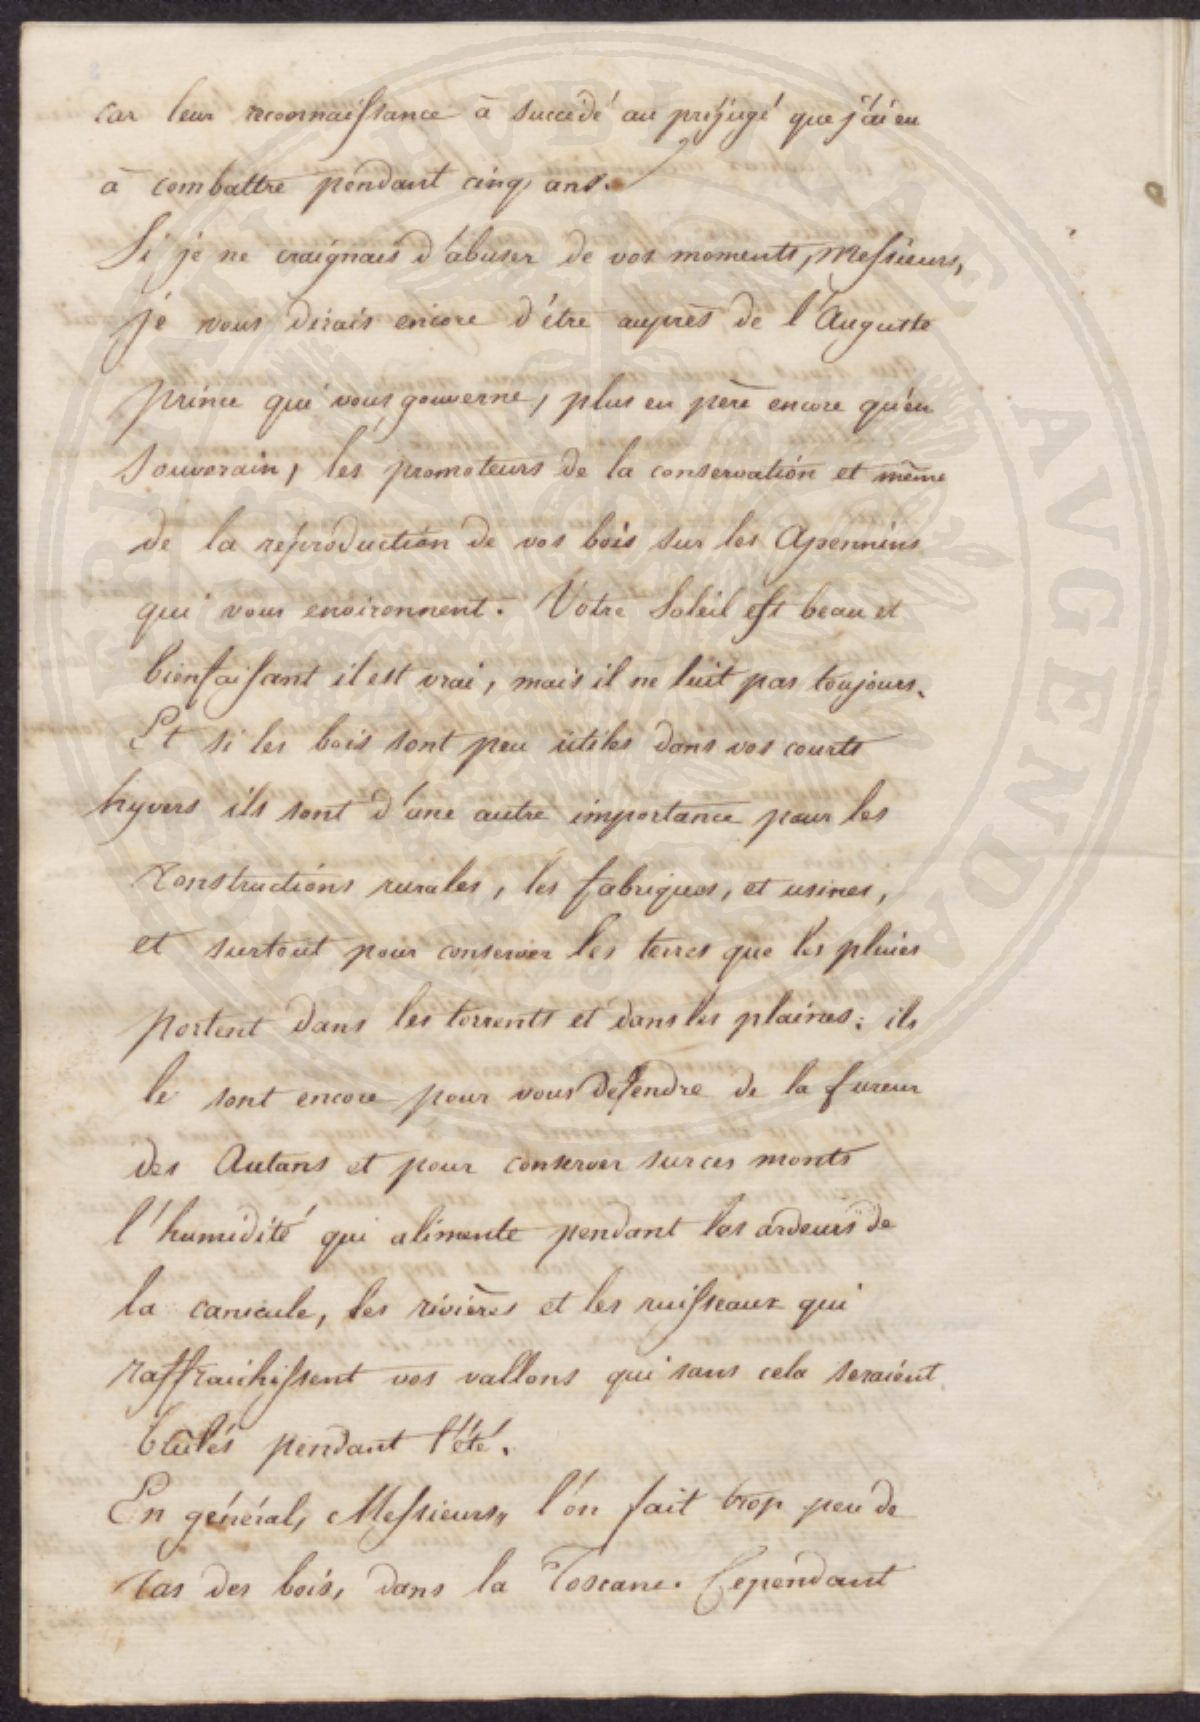 car leur reconnaissance à succédé au préjugé que j'ai eu
à combattre pendant cinq ans.
Si je ne craignais d'abuser de vos moments, Messieurs,
je vous dirais encore d'être auprès de l'Auguste
prince qui vous gouverne, plus en père encore qu'en
Souverain, les promoteurs de la conservation et même
de la réproduction de vos bois sur les Apennins
qui vous environnent. Votre Soleil est beau et
bienfaisant il est vrai, mais il ne luit pas toujours.
Et si les bois sont peu utiles dans vos courts
hyvers ils sont d'une autre importance pour les
constructions rurales, les fabriques, et usines,
et surtout pour conserver les terres que les pluies
portent dans les torrents et dans les plaines: ils
le sont encore pour vous defendre de la fureur
des Autans et pour conserver sur ces monts
l'humidité qui alimente pendant les ardeurs de
la canicule, les rivières et les ruisseaux qui
raffraichissent vos vallons qui sans cela seraient
brulés pendant l'été.
En général, Messieurs, l'on fait trop peu de
cas des bois, dans la Toscane. Cependant